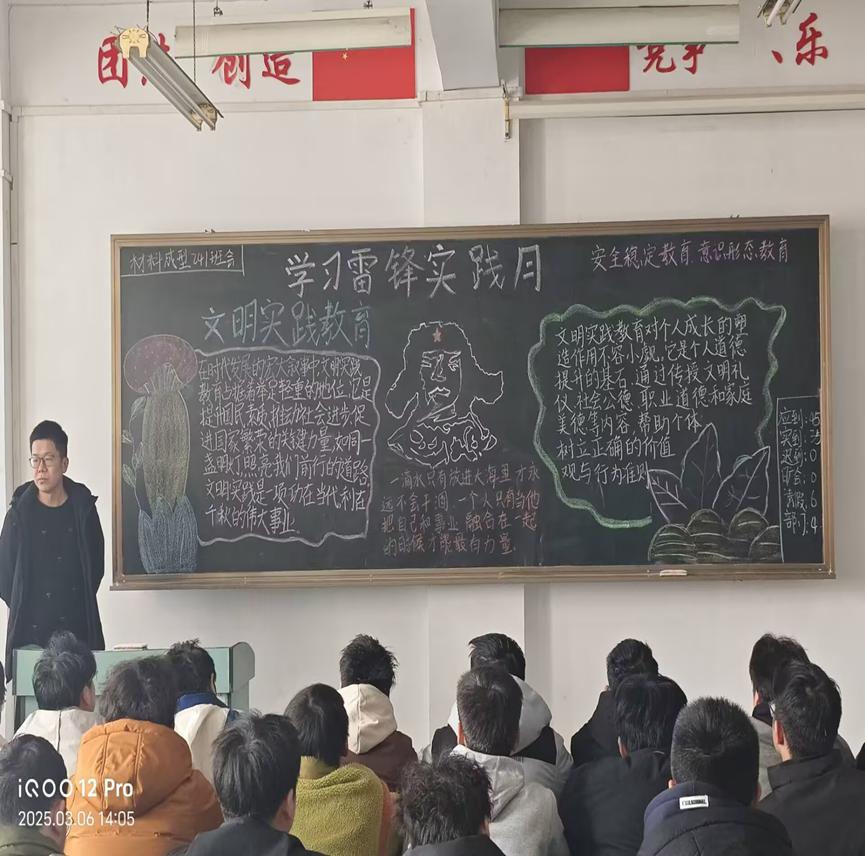 创造
乐
材料成型241班会
学习雷锋实践月
安全稳定教育 意识形态教育
文明实践教育
在时代发展的宏大叙事中文明实践
教育占据着举足轻重的地位,它是
提升国民素质,推动社会进步,促
进国家繁荣的关键力量,如同一
盏明灯照亮我们前行的道路
文明实践是一项功在当代利在
千秋的伟大事业
一滴水只有放进大海里才永
远不会干涸,一个人只有当他
把自己和事业融合在一起
的时候才能最有力量.
文明实践教育对个人成长的塑
造作用不容小觑,它是个人道德
提升的基石,通过传授文明礼
仪、社会公德、职业道德和家庭
美德等内容,帮助个体
树立正确的价值
观与行为准则
应到:45
实到:
迟到:0
旷会:0
请假:6
部门:4
iQOO 12 Pro
2025.03.06 14:05